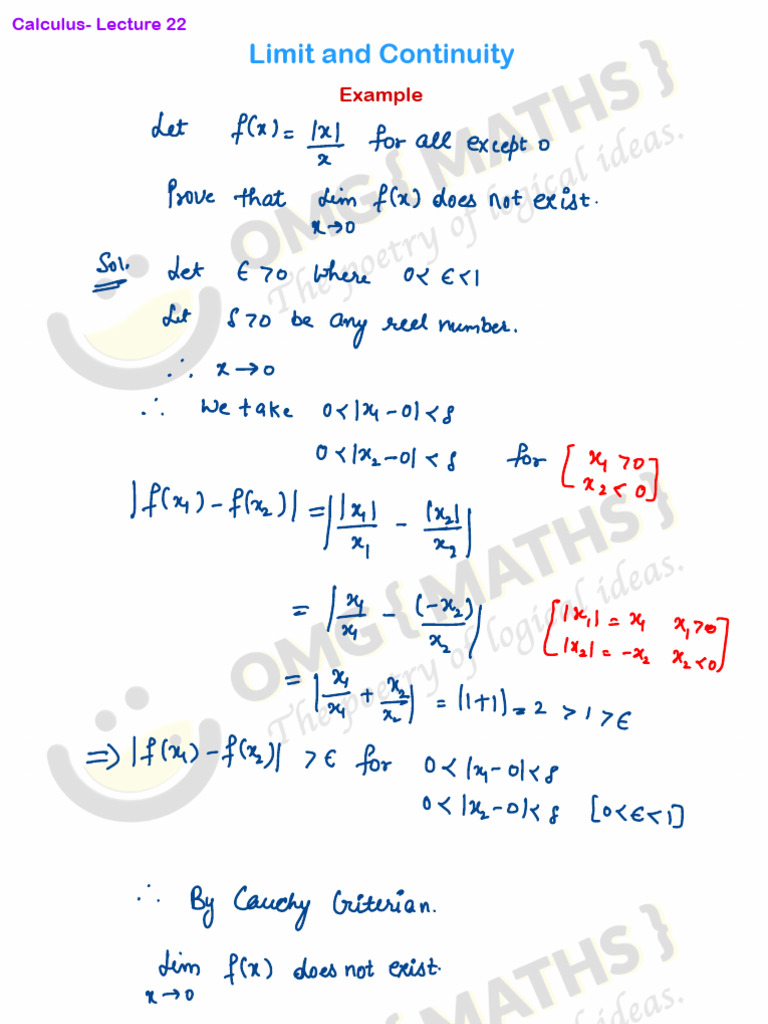 Calculus- Lecture 22
Limit and Continuity
Example
Let f(x) = |x|/x for all except 0
Prove that lim x→0 f(x) does not exist.
Sol. Let ε > 0 where 0 < ε < 1
Let δ > 0 be any reel number.
∴ x → 0
∴ We take 0 < |x₁ - 0| < δ
0 < |x₂ - 0| < δ for [x₁ > 0
x₂ < 0]
|f(x₁) - f(x₂)| = ||x₁|/x₁ - |x₂|/x₂|
= |x₁/x₁ - (-x₂)/x₂| [|x₁| = x₁ x₁ > 0
|x₂| = -x₂ x₂ < 0]
= |x₁/x₁ + x₂/x₂| = |1+1| = 2 > 1 > ε
⇒ |f(x₁) - f(x₂)| > ε for 0 < |x₁ - 0| < δ
0 < |x₂ - 0| < δ [0 < ε < 1]
∴ By Cauchy Criterian.
lim x→0 f(x) does not exist.
OMG{MATHS}
The poetry of logical ideas.
OMG{MATHS}
The poetry of logical ideas.
OMG{MATHS}
The poetry of logical ideas.